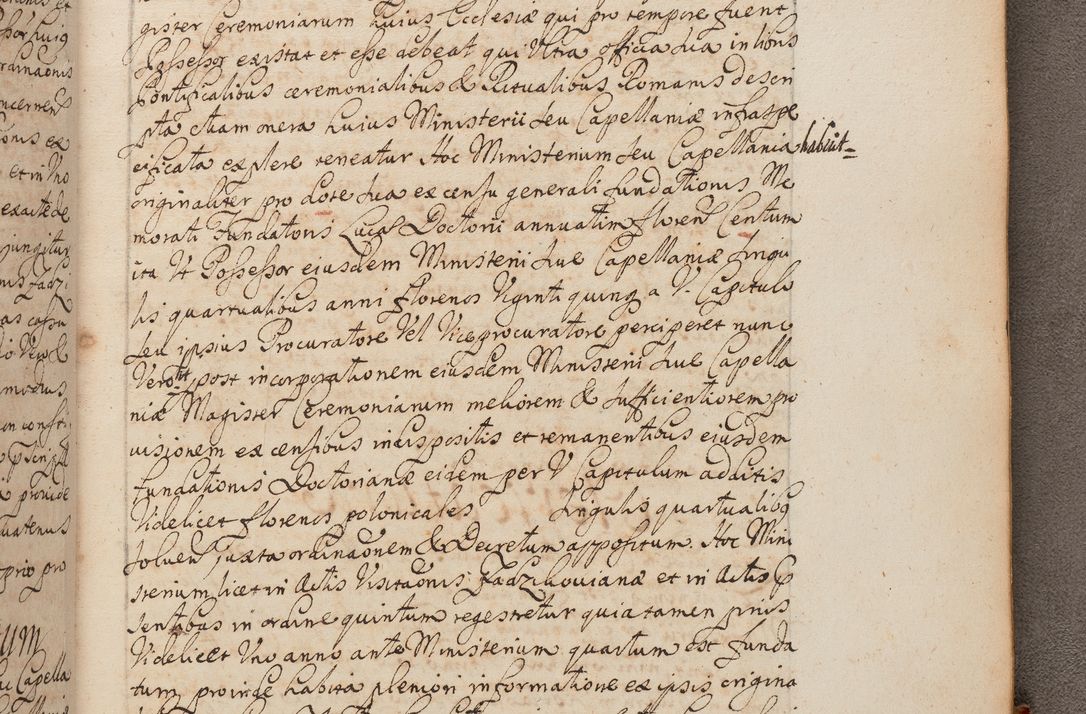 gister Ceremoniarum huius Ecclesiæ qui pro tempore fuerit
Possessor existat et esse debeat qui Ultra officia sua in libris
Pontificalibus ceremonialibus & Ritualibus Romanis descri
pta etiam onera huius Ministerii seu Capellaniæ infraspe
cificata explere teneatur Hoc Ministerium seu Capellania habuit
originaliter pro dote sua ex censu generali fundationis Me
morati Fundatoris Lucæ Doctorii annuatim floren Centum
ita Ut Possessor eiusdem Ministerii sive Capellaniæ singu
lis quartualibus anni florenos Viginti quinq a V. Capitulo
seu ipsius Procuratore Vel Viceprocuratore perciperet nunc
Vero post incorporationem eiusdem Ministerii sive Capella
niæ Magister Ceremoniarum meliorem & sufficientiorem pro
visionem ex censibus indispositis et remanentibus eiusdem
fundationis Doctorianæ eidem per V Capitulum additis
Videlicet florenos polonicales singulis quartualibq
solven juxta ordinaonem & Decretum appositum. Hoc Mini
sterium licet in Actis Visitaonis Zadzikovianæ et in Actis p
sentibus in ordine quintum regestretur quia tamen prius
Videlicet Uno anno ante Ministerium quartum est funda
tum, proinde habita pleniori informatione ex ipsis origina